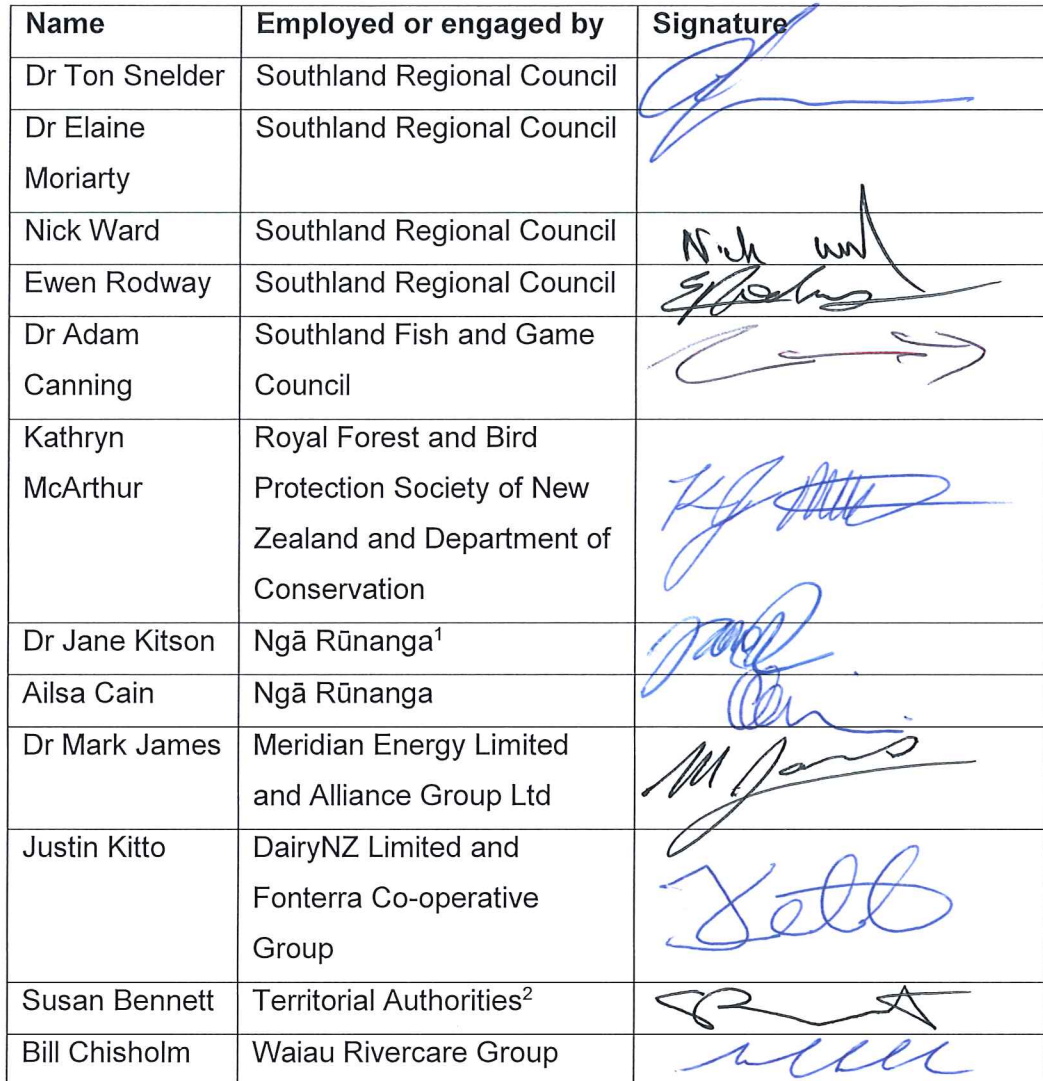 Name Employed or engaged by Signature
Dr Ton Snelder Southland Regional Council
Dr Elaine Southland Regional Council
Moriarty
Nick Ward Southland Regional Council Nick
Ewen Rodway Southland Regional Council
Dr Adam Southland Fish and Game
Canning Council
Kathryn Royal Forest and Bird
McArthur Protection Society of New
Zealand and Department of
Conservation
Dr Jane Kitson Ngā Rūnanga¹
Ailsa Cain Ngā Rūnanga
Dr Mark James Meridian Energy Limited
and Alliance Group Ltd
Justin Kitto DairyNZ Limited and
Fonterra Co-operative
Group
Susan Bennett Territorial Authorities²
Bill Chisholm Waiau Rivercare Group